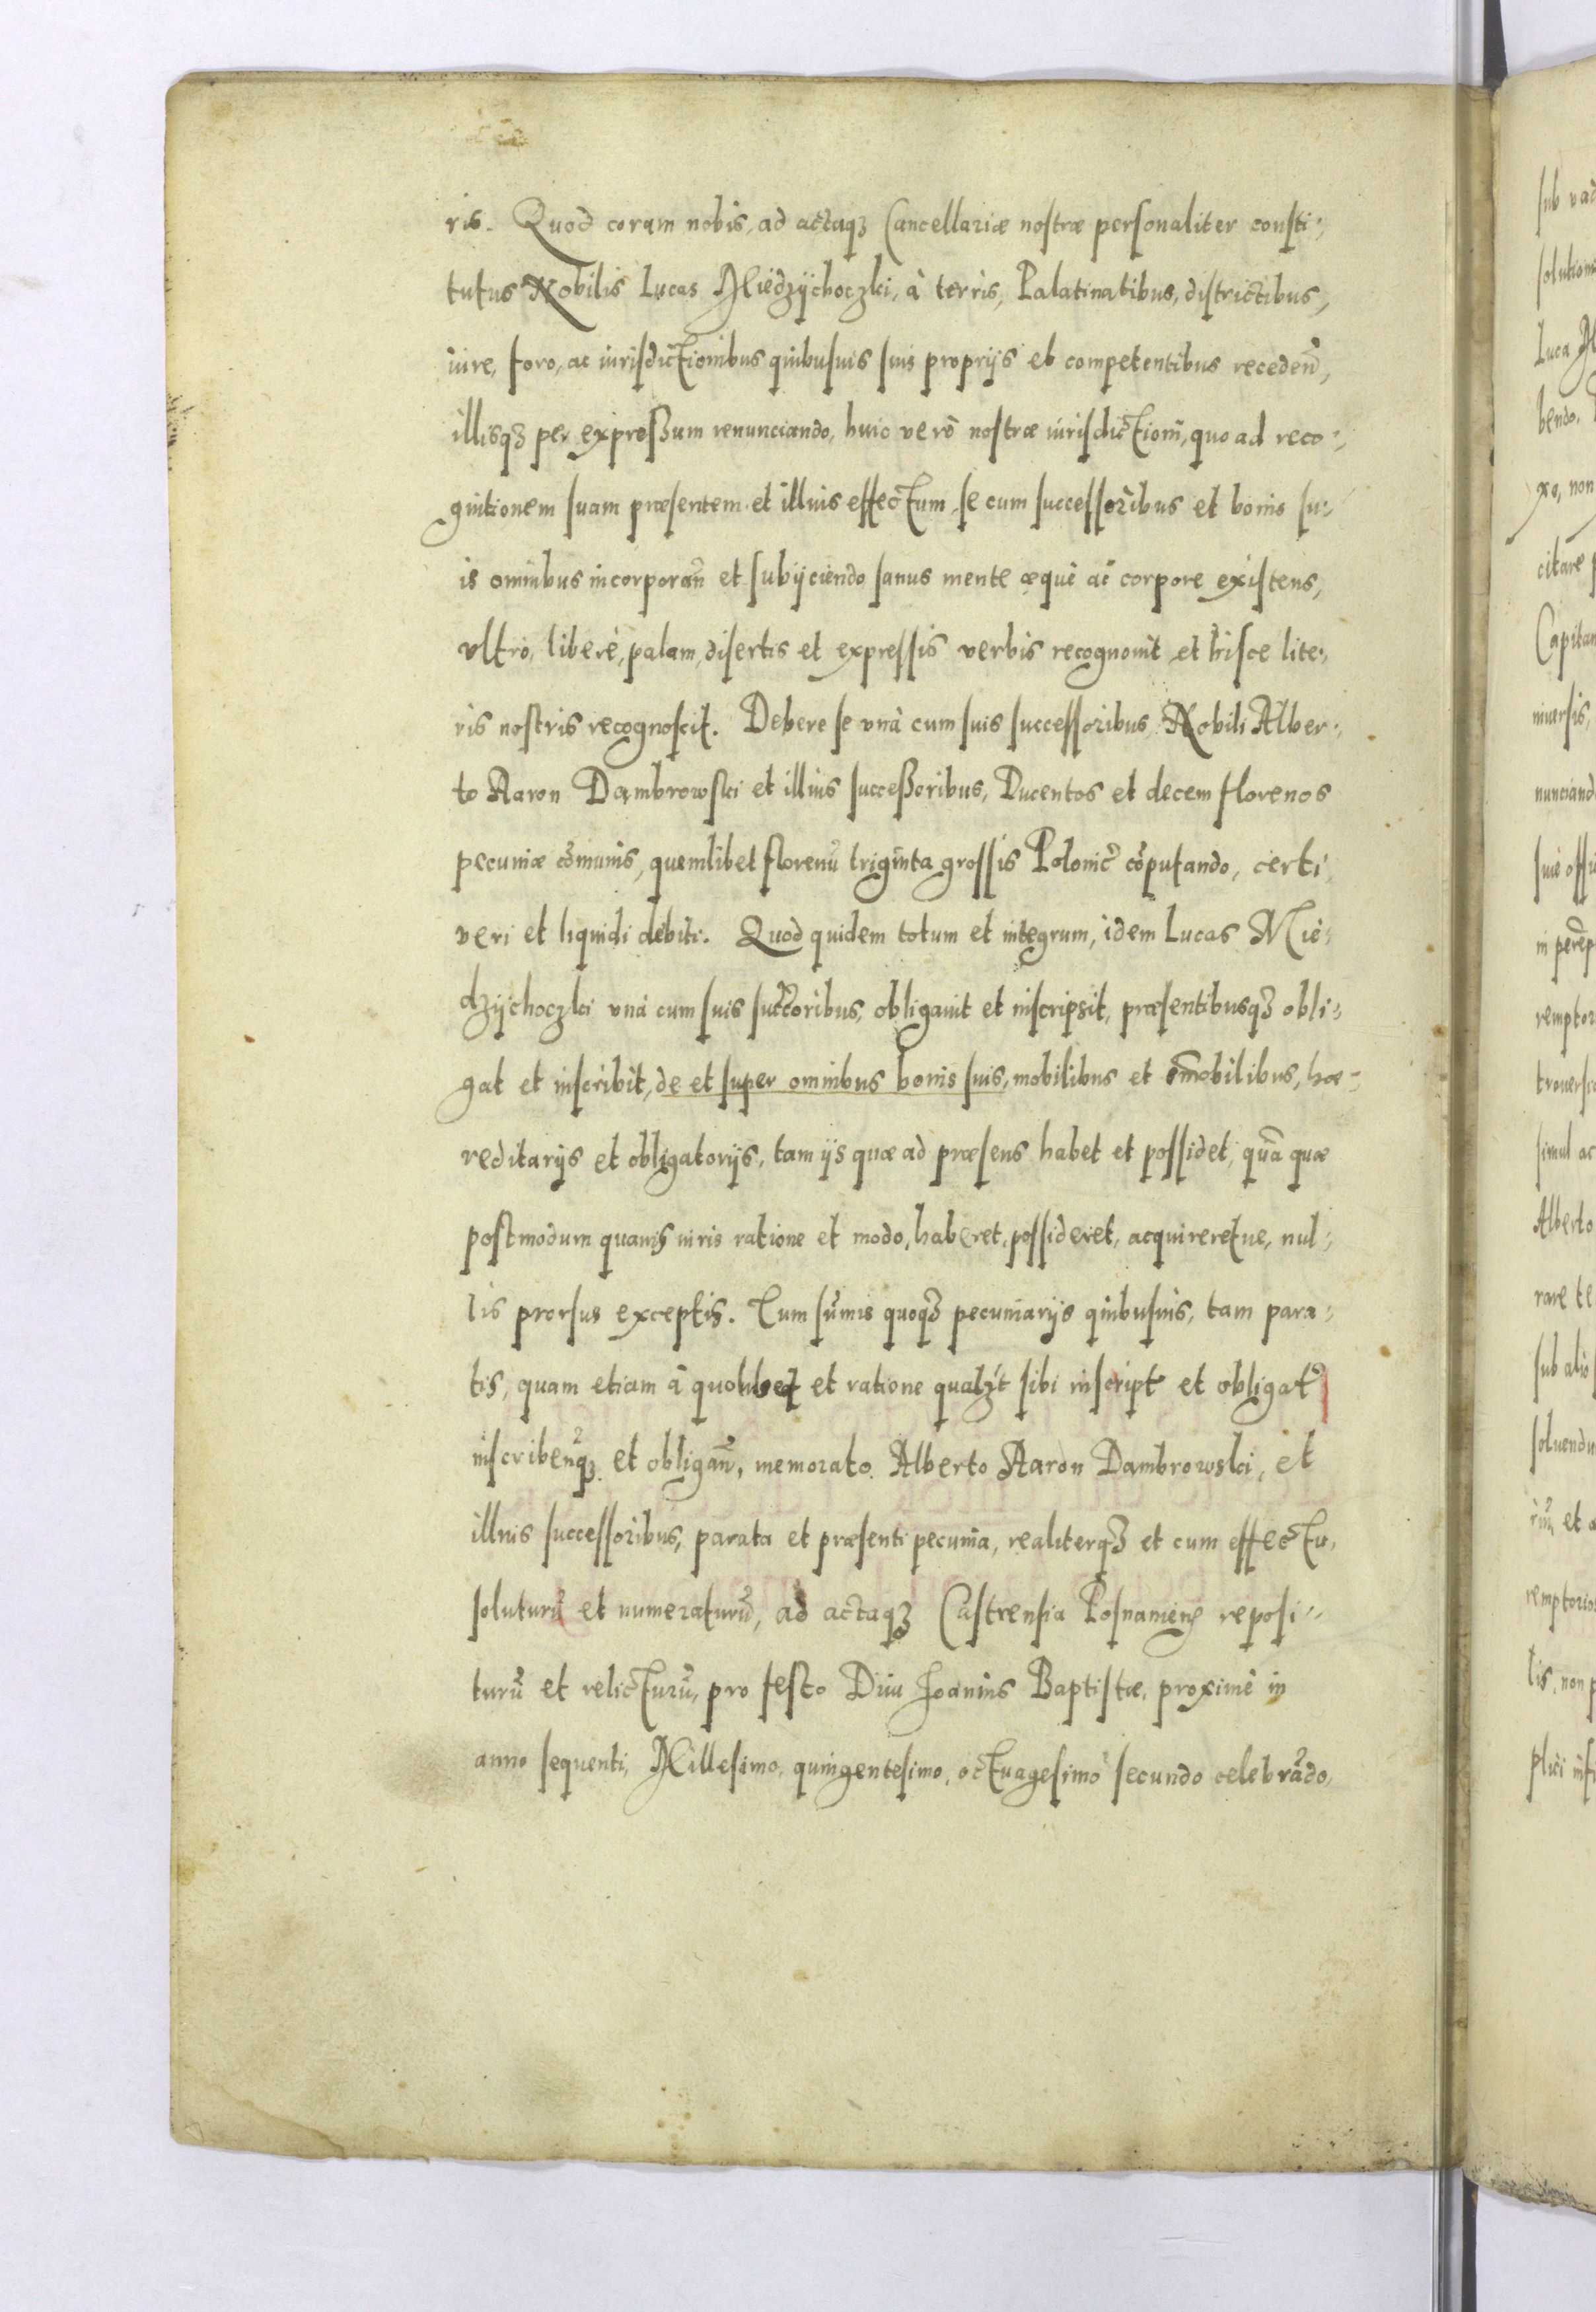 ris. Quod coram nobis, ad actaqȝ Cancellariæ nostræ personaliter consti:
tutus Nobilis Lucas Miedzÿchoczki, à terris, Palatinatibus, districtibus,
iure, foro, ac iurisdictionibus quibusuis suis proprijs et competentibus receden̄,
illisqȝ per expreßum renunciando, huic verò nostræ iurisdictioni, quo ad reco:
gnitionem suam præsentem et illius effectum, se cum successoribus et bonis su:
is omnibus incorporan̄ et subijciendo sanus mente æquè ac corpore existens,
vltrò, liberè, palam, disertis et expressis verbis recognouit et hisce lite:
ris nostris recognoscit. Debere se vnà cum suis successoribus Nobili Alber:
to Aaron Dambrowski et illius succeßoribus, Ducentos et decem florenos
pecuniæ cōmunis, quemlibet florenū triginta grossis Polonic̄ cōputando, certi,
veri et liquidi debiti. Quod quidem totum et integrum, idem Lucas Mie:
dzÿchoczki vnà cum suis succ̄oribus, obligauit et inscripsit, præsentibusqȝ obli:
gat et inscribit, de et super omnibus bonis suis, mobilibus et im̄obilibus, hæ:
reditarijs et obligatorijs, tam ijs quæ ad præsens habet et possidet, quā quæ
postmodum quauis iuris ratione et modo, haberet, possideret, acquireretue, nul:
lis prorsus exceptis. Tum sūmis quoqȝ pecuniarijs quibusuis, tam para:
tis, quam etiam à quolibet et ratione qualȝt sibi inscript̄ et obligat̄
inscriben̄qȝ et obligan̄, memorato Alberto Aaron Dambrowski, et
illius successoribus, parata et præsenti pecunia, realiterqȝ et cum effectu,
soluturū et numeraturū, ad actaqȝ Castrensia Posnanien̄ reposi:
turū et relicturū, pro festo Diui Ioannis Baptistæ, proximè in
anno sequenti, Millesimo, quingentesimo, octuagesimo secundo celebrādo,
sub
solution
Luca
bendo.
xo, non
citare
Capitan
niuersis,
nunciand
in
remptor
trouersi
simul ac
Alberto
rare te
sub alio
soluendu
et
remptorio
lis, non